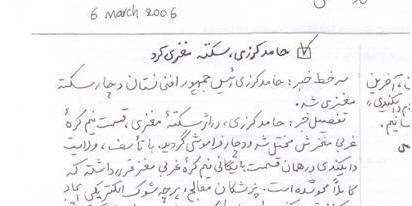 6 March 2006
حامد کرزی، سکته مغزی کرد
سرخط خبر: حامد کرزی رئیس جمهور افغانستان دچار سکته
مغزی شد.
تفصیل خبر: حامد کرزی، در اثر سکتهٔ مغزی، قسمت نیم کرهٔ
غربی مغزش مختل شد و دچار فراموشی گردید. با تأسف، ولایت
دایکندی در همان قسمت بایگانی نیم کرهٔ غربی مغز قرار داشته که
کاملاً محو شده است. پزشکان معالج، هر چه شوک الکتریکی